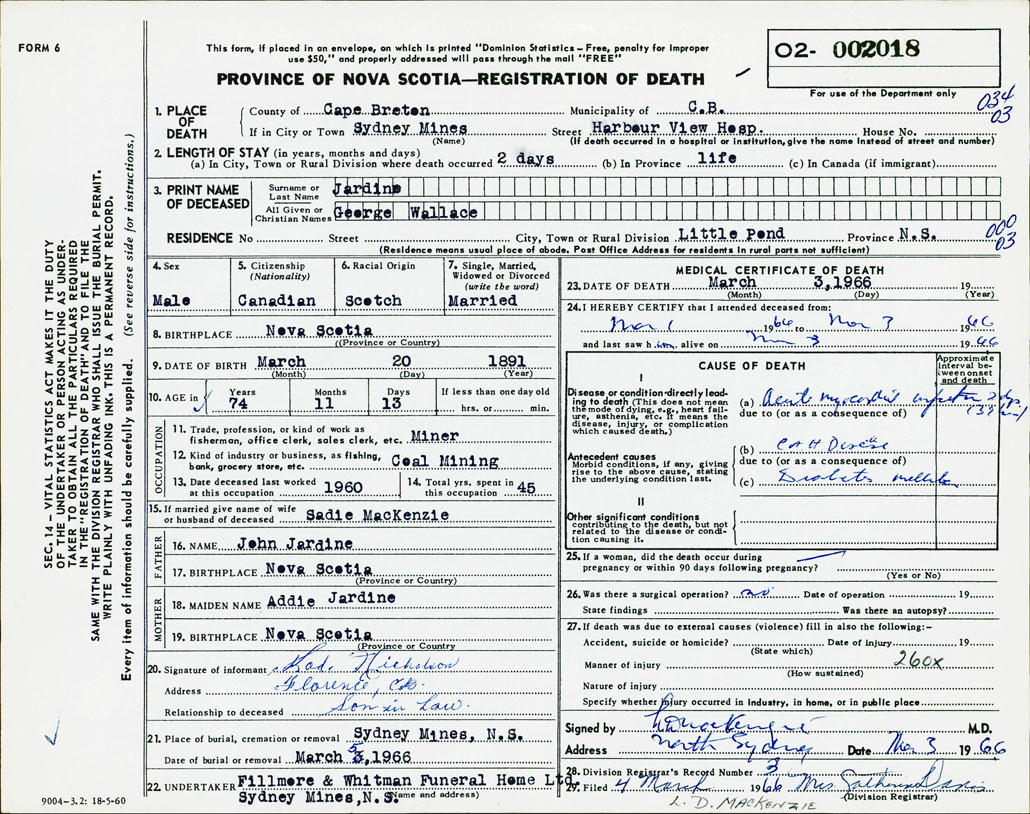 FORM 6
This form, if placed in an envelope, on which is printed "Dominion Statistics – Free, penalty for improper
use $50," and properly addressed will pass through the mail "FREE"
PROVINCE OF NOVA SCOTIA—REGISTRATION OF DEATH
02- 002018
For use of the Department only
034
03
SEC. 14 – VITAL STATISTICS ACT MAKES IT THE DUTY
OF THE UNDERTAKER OR PERSON ACTING AS UNDER-
TAKER TO OBTAIN ALL THE PARTICULARS REQUIRED
IN THE "REGISTRATION OF DEATH" AND TO FILE THE
SAME WITH THE DIVISION REGISTRAR WHO SHALL ISSUE THE BURIAL PERMIT.
WRITE PLAINLY WITH UNFADING INK. THIS IS A PERMANENT RECORD.
Every item of information should be carefully supplied. (See reverse side for instructions.)
1. PLACE OF DEATH
County of Cape Breton Municipality of C.B.
If in City or Town Sydney Mines Street Harbour View Hosp. House No.
(Name) (If death occurred in a hospital or institution, give the name instead of street and number)
2. LENGTH OF STAY (in years, months and days)
(a) In City, Town or Rural Division where death occurred 2 days (b) In Province life (c) In Canada (if immigrant)
3. PRINT NAME OF DECEASED
Surname or Last Name Jardine
All Given or Christian Names George Wallace
RESIDENCE No Street City, Town or Rural Division Little Pond Province N.S.
000
03
(Residence means usual place of abode. Post Office Address for residents in rural parts not sufficient)
4. Sex
Male
5. Citizenship
(Nationality)
Canadian
6. Racial Origin
Scotch
7. Single, Married, Widowed or Divorced
(write the word)
Married
8. BIRTHPLACE Nova Scotia
(Province or Country)
9. DATE OF BIRTH March 20 1891
(Month) (Day) (Year)
10. AGE in Years Months Days If less than one day old
74 11 13 hrs. or min.
OCCUPATION
11. Trade, profession, or kind of work as
fisherman, office clerk, sales clerk, etc. Miner
12. Kind of industry or business, as fishing,
bank, grocery store, etc. Coal Mining
13. Date deceased last worked
at this occupation 1960
14. Total yrs. spent in
this occupation 45
15. If married give name of wife
or husband of deceased Sadie MacKenzie
FATHER
16. NAME John Jardine
17. BIRTHPLACE Nova Scotia
(Province or Country)
MOTHER
18. MAIDEN NAME Addie Jardine
19. BIRTHPLACE Nova Scotia
(Province or Country)
20. Signature of informant Nicholson
Address Florence, C.B.
Relationship to deceased Son in Law.
21. Place of burial, cremation or removal Sydney Mines, N.S.
Date of burial or removal March 5, 1966
22. UNDERTAKER Fillmore & Whitman Funeral Home Ltd.
Sydney Mines, N.S. (Name and address)
9004-3.2: 18-5-60
MEDICAL CERTIFICATE OF DEATH
23. DATE OF DEATH March 3, 1966 19
(Month) (Day) (Year)
24. I HEREBY CERTIFY that I attended deceased from:
Mar 1 1966 to Mar 3 1966
and last saw him alive on Mar 3 1966
CAUSE OF DEATH
Approximate interval between onset and death
I
Disease or condition directly lead-
ing to death (This does not mean
the mode of dying, e.g., heart fail-
ure, asthenia, etc. It means the
disease, injury, or complication
which caused death.)
(a) Acute myocardial infarction 2 days
due to (or as a consequence of)
Antecedent causes
Morbid conditions, if any, giving
rise to the above cause, stating
the underlying condition last.
(b) C A H Disease
due to (or as a consequence of)
(c) Diabetes mellitus
II
Other significant conditions
contributing to the death, but not
related to the disease or condi-
tion causing it.
25. If a woman, did the death occur during
pregnancy or within 90 days following pregnancy?
(Yes or No)
26. Was there a surgical operation? no Date of operation 19
State findings Was there an autopsy?
27. If death was due to external causes (violence) fill in also the following:–
Accident, suicide or homicide? Date of injury 19
(State which)
Manner of injury 260x
(How sustained)
Nature of injury
Specify whether injury occurred in industry, in home, or in public place
Signed by L D MacKenzie M.D.
Address North Sydney Date Mar 3 1966
28. Division Registrar's Record Number 3
29. Filed 4 March 1966 Mrs Catherine Davis
(Division Registrar)
L. D. MACKENZIE